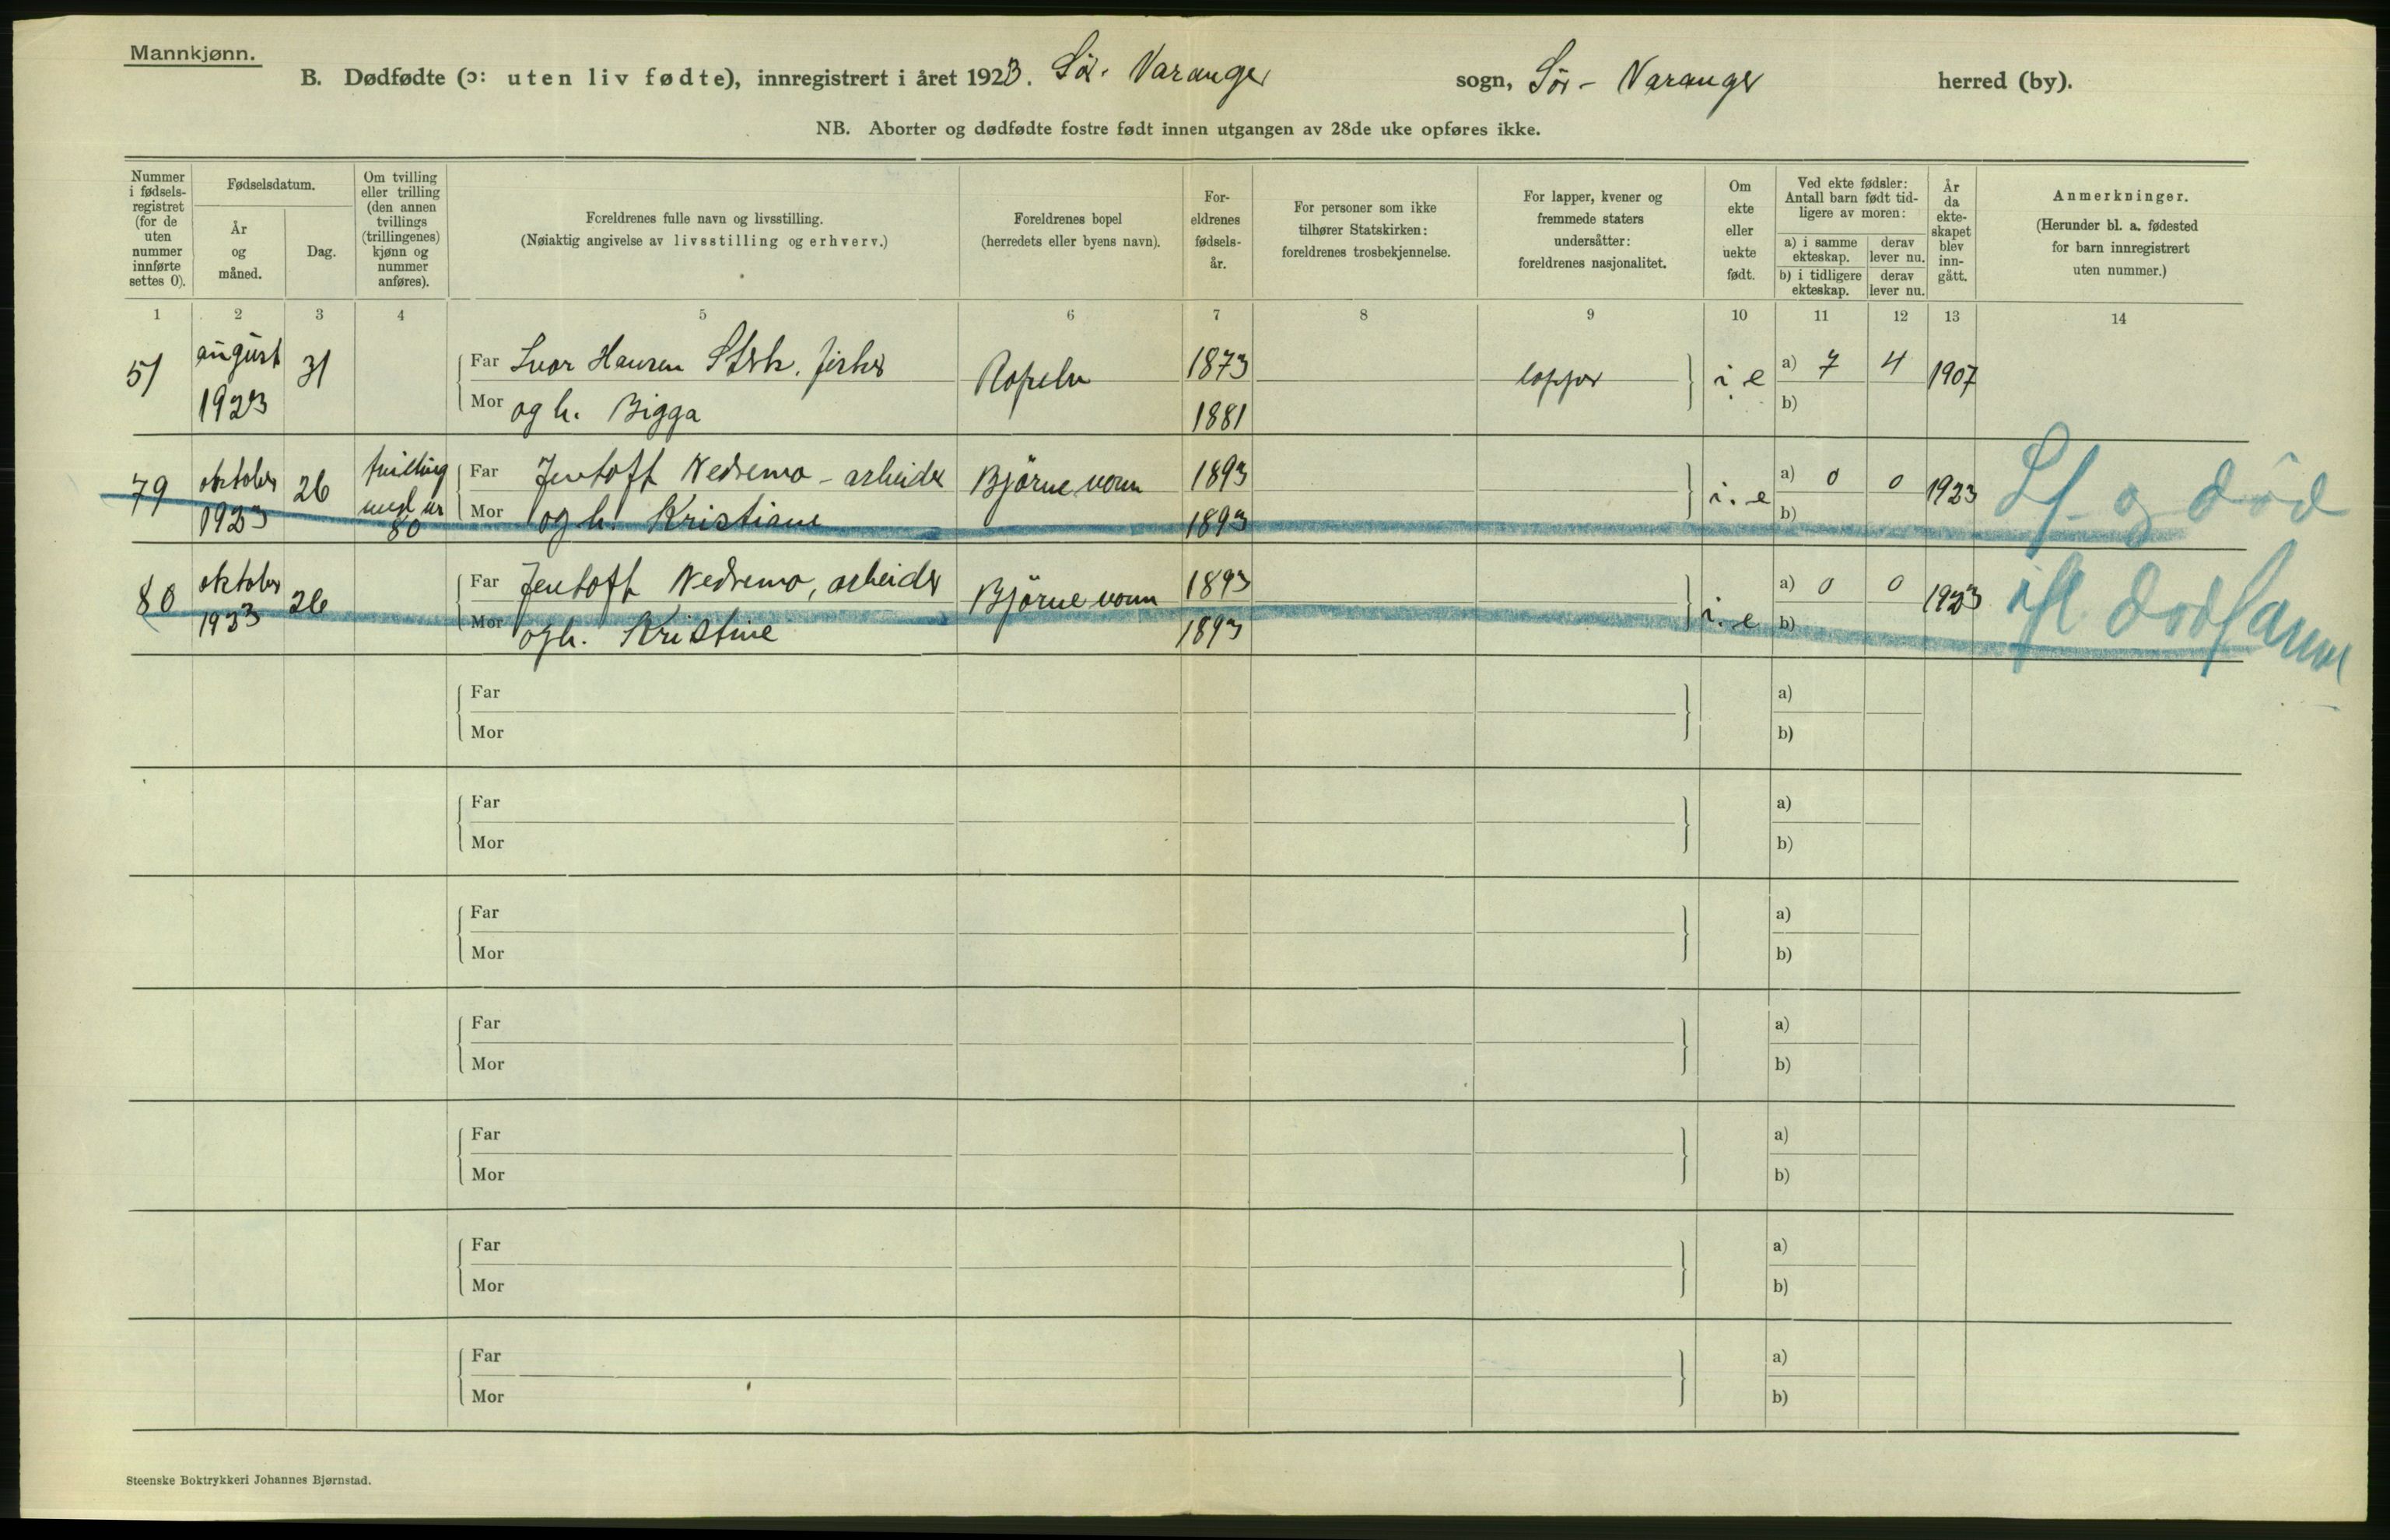 Mannkjønn.
B. Dødfødte (ɔ: uten liv fødte), innregistrert i året 1923. Sör-Varanger sogn, Sör-Varanger herred (by).
NB. Aborter og dødfødte fostre født innen utgangen av 28de uke opføres ikke.
Nummer i fødsels-registret (for de uten nummer innførte settes 0).
Fødselsdatum.
År og måned.
Dag.
Om tvilling eller trilling (den annen tvillings (trillingenes) kjønn og nummer anføres).
Foreldrenes fulle navn og livsstilling.
(Nøiaktig angivelse av livsstilling og erhverv.)
Foreldrenes bopel
(herredets eller byens navn).
For-eldrenes fødsels-år.
For personer som ikke tilhører Statskirken: foreldrenes trosbekjennelse.
For lapper, kvener og fremmede staters undersåtter: foreldrenes nasjonalitet.
Om ekte eller uekte født.
Ved ekte fødsler: Antall barn født tid-ligere av moren:
a) i samme ekteskap.
derav lever nu.
b) i tidligere ekteskap.
derav lever nu.
År da ekte-skapet blev inn-gått.
Anmerkninger.
(Herunder bl. a. fødested for barn innregistrert uten nummer.)
1 2 3 4 5 6 7 8 9 10 11 12 13 14
51 august 31 Far Ivar Hansen fisker 1873 i. e a) 7 4 1907
1923 Mor og h. Bigga 1881 b)
79 oktober 26 tvilling Far Jentoft Nedremo - arbeider Björnevann 1893 i. e a) 0 0 1923 og död
1923 med nr 80 Mor og h. Kristiane 1893 b)
80 oktober 26 Far Jentoft Nedremo, arbeider Björnevann 1893 i. e a) 0 0 1923
1923 Mor og h. Kristine 1893 b)
Far a)
Mor b)
Far a)
Mor b)
Far a)
Mor b)
Far a)
Mor b)
Far a)
Mor b)
Far a)
Mor b)
Far a)
Mor b)
Steenske Boktrykkeri Johannes Bjørnstad.